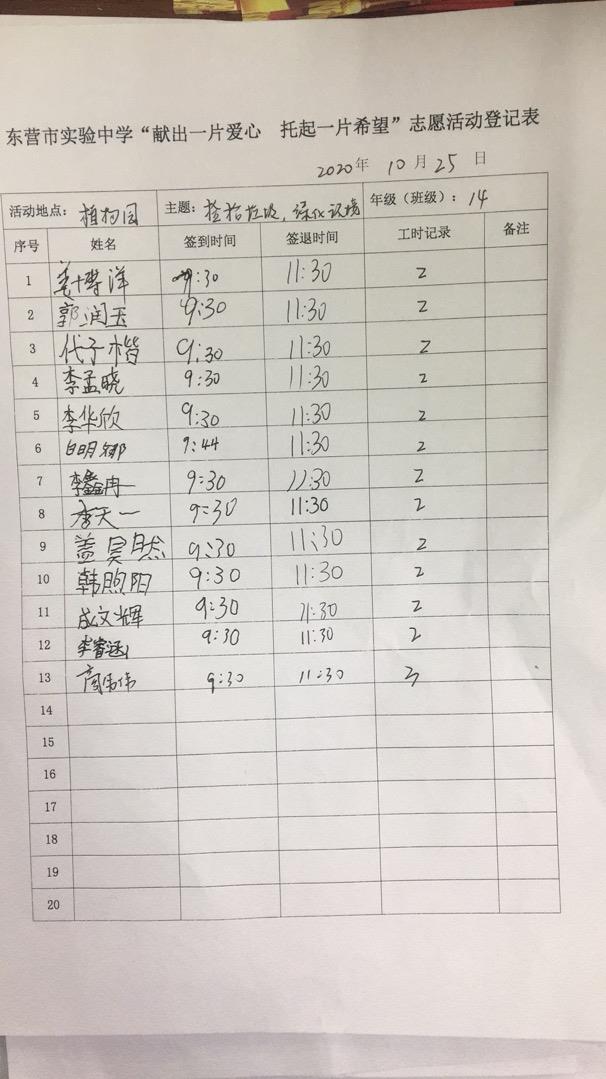 东营市实验中学“献出一片爱心 托起一片希望”志愿活动登记表
2020年 10月25日
活动地点：植物园 主题：捡拾垃圾，绿化环境 年级（班级）：14
序号 姓名 签到时间 签退时间 工时记录 备注
1 姜博洋 9:30 11:30 2
2 郭润玉 9:30 11:30 2
3 代子楷 9:30 11:30 2
4 李孟晓 9:30 11:30 2
5 李华欣 9:30 11:30 2
6 白明娜 9:44 11:30 2
7 李鑫冉 9:30 11:30 2
8 李天一 9:30 11:30 2
9 盖昊然 9:30 11:30 2
10 韩煦阳 9:30 11:30 2
11 成文辉 9:30 11:30 2
12 李睿涵 9:30 11:30 2
13 伟伟 9:30 11:30 3
14
15
16
17
18
19
20